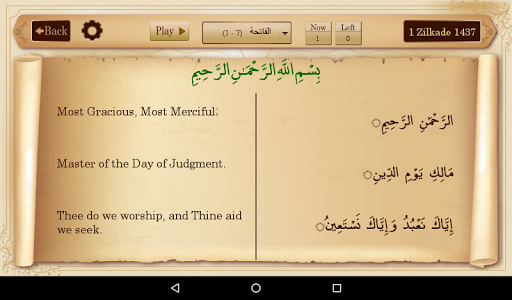 Back
Play
الفاتحة (1 - 7)
Now
1
Left
0
1 Zilkade 1437
بِسْمِ اللَّهِ الرَّحْمَٰنِ الرَّحِيمِ
Most Gracious, Most Merciful;
الرَّحْمَٰنِ الرَّحِيمِ
Master of the Day of Judgment.
مَالِكِ يَوْمِ الدِّينِ
Thee do we worship, and Thine aid
we seek.
إِيَّاكَ نَعْبُدُ وَإِيَّاكَ نَسْتَعِينُ